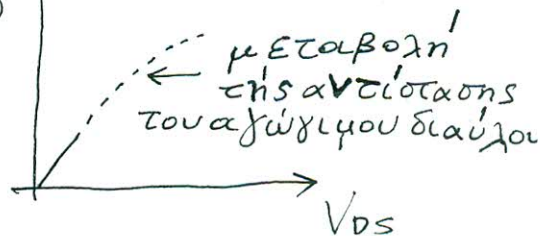 μεταβολή
τής αντίστασης
του αγώγιμου διαύλου
VDS